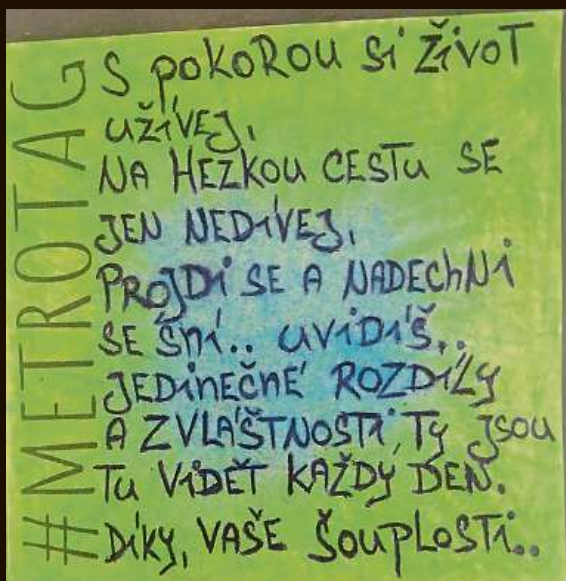 #METROTAG
S POKOROU SI ŽIVOT
UŽÍVEJ,
NA HEZKOU CESTU SE
JEN NEDÍVEJ,
PROJDI SE A NADECHNI
SE SNÍ.. UVIDÍŠ..
JEDINEČNÉ ROZDÍLY
A ZVLÁŠTNOSTI, TY JSOU
TU VIDĚT KAŽDÝ DEN.
DÍKY, VAŠE ŠOUPLOSTI..